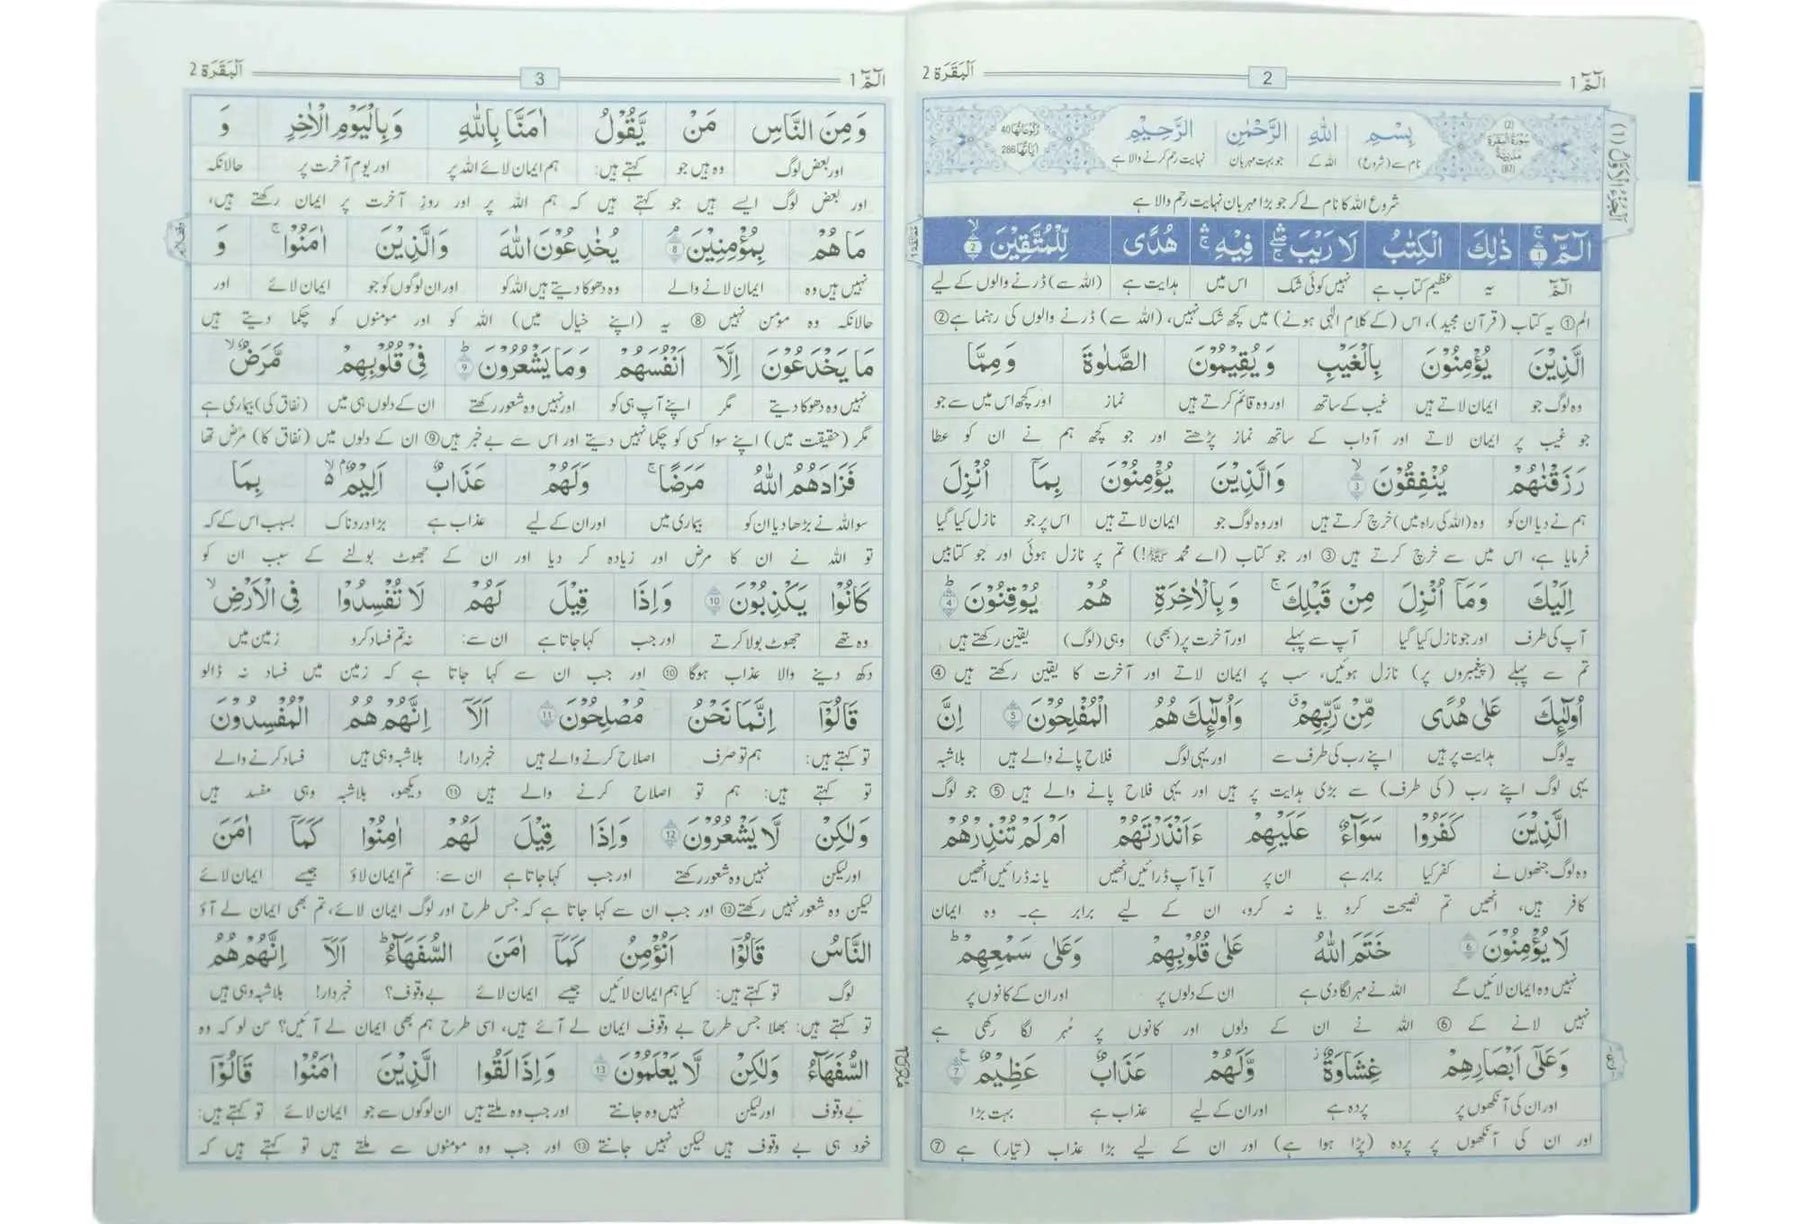 الٓمّٓ 1
2
اَلْبَقَرَة 2
اَلْجُزْءُ الْاَوَّلُ (1)
(2) سُوْرَةُ الْبَقَرَةِ مَدَنِيَّةٌ (87)
بِسْمِ اللّٰهِ الرَّحْمٰنِ الرَّحِيْمِ
رُكُوْعَاتُهَا 40 اٰيَاتُهَا 286
نام سے (شروع) اللہ کے جو بہت مہربان نہایت رحم کرنے والا ہے
شروع اللہ کا نام لے کر جو بڑا مہربان نہایت رحم والا ہے
الٓمّٓ ۚ ۝1 ذٰلِكَ الْكِتٰبُ لَا رَيْبَ ۛ فِيْهِ ۛ هُدًى لِّلْمُتَّقِيْنَ ۙ ۝2
الٓمّٓ یہ عظیم کتاب ہے نہیں کوئی شک اس میں ہدایت ہے (اللہ سے) ڈرنے والوں کے لیے
الم① یہ کتاب (قرآن مجید)، اس (کے کلام الٰہی ہونے) میں کچھ شک نہیں، (اللہ سے) ڈرنے والوں کی رہنما ہے②
الَّذِيْنَ يُؤْمِنُوْنَ بِالْغَيْبِ وَ يُقِيْمُوْنَ الصَّلٰوةَ وَ مِمَّا
وہ لوگ جو ایمان لاتے ہیں غیب کے ساتھ اور وہ قائم کرتے ہیں نماز اور کچھ اس میں سے جو
جو غیب پر ایمان لاتے اور آداب کے ساتھ نماز پڑھتے اور جو کچھ ہم نے ان کو عطا
رَزَقْنٰهُمْ يُنْفِقُوْنَ ۙ ۝3 وَالَّذِيْنَ يُؤْمِنُوْنَ بِمَآ اُنْزِلَ
ہم نے دیا ان کو وہ (اللہ کی راہ میں) خرچ کرتے ہیں اور وہ لوگ جو ایمان لاتے ہیں اس پر جو نازل کیا گیا
فرمایا ہے، اس میں سے خرچ کرتے ہیں③ اور جو کتاب (اے محمد ﷺ!) تم پر نازل ہوئی اور جو کتابیں
اِلَيْكَ وَمَآ اُنْزِلَ مِنْ قَبْلِكَ ۚ وَبِالْاٰخِرَةِ هُمْ يُوْقِنُوْنَ ؕ ۝4
آپ کی طرف اور جو نازل کیا گیا آپ سے پہلے اور آخرت پر (بھی) وہی (لوگ) یقین رکھتے ہیں
تم سے پہلے (پیغمبروں پر) نازل ہوئیں، سب پر ایمان لاتے اور آخرت کا یقین رکھتے ہیں④
اُولٰٓئِكَ عَلٰى هُدًى مِّنْ رَّبِّهِمْ ۗ وَاُولٰٓئِكَ هُمُ الْمُفْلِحُوْنَ ۝5 اِنَّ
یہ لوگ ہدایت پر ہیں اپنے رب کی طرف سے اور یہی لوگ فلاح پانے والے ہیں بلاشبہ
یہی لوگ اپنے رب (کی طرف) سے بڑی ہدایت پر ہیں اور یہی فلاح پانے والے ہیں⑤ جو لوگ
الَّذِيْنَ كَفَرُوْا سَوَآءٌ عَلَيْهِمْ ءَاَنْذَرْتَهُمْ اَمْ لَمْ تُنْذِرْهُمْ
وہ لوگ جنھوں نے کفر کیا برابر ہے ان پر آیا آپ ڈرائیں انھیں یا نہ ڈرائیں انھیں
کافر ہیں، انھیں تم نصیحت کرو یا نہ کرو، ان کے لیے برابر ہے۔ وہ ایمان
لَا يُؤْمِنُوْنَ ۝6 خَتَمَ اللّٰهُ عَلٰى قُلُوْبِهِمْ وَعَلٰى سَمْعِهِمْ ؕ
نہیں وہ ایمان لائیں گے اللہ نے مہر لگا دی ہے ان کے دلوں پر اور ان کے کانوں پر
نہیں لانے کے⑥ اللہ نے ان کے دلوں اور کانوں پر مُہر لگا رکھی ہے
وَعَلٰٓى اَبْصَارِهِمْ غِشَاوَةٌ ۡ وَّلَهُمْ عَذَابٌ عَظِيْمٌ ۝7
اور ان کی آنکھوں پر پردہ ہے اور ان کے لیے عذاب ہے بہت بڑا
اور ان کی آنکھوں پر پردہ (پڑا ہوا ہے) اور ان کے لیے بڑا عذاب (تیار) ہے⑦
الٓمّٓ 1
3
اَلْبَقَرَة 2
وَمِنَ النَّاسِ مَنْ يَّقُوْلُ اٰمَنَّا بِاللّٰهِ وَبِالْيَوْمِ الْاٰخِرِ وَ
اور بعض لوگ وہ ہیں جو کہتے ہیں: ہم ایمان لائے اللہ پر اور یوم آخرت پر حالانکہ
اور بعض لوگ ایسے ہیں جو کہتے ہیں کہ ہم اللہ پر اور روزِ آخرت پر ایمان رکھتے ہیں،
مَا هُمْ بِمُؤْمِنِيْنَ ۘ ۝8 يُخٰدِعُوْنَ اللّٰهَ وَالَّذِيْنَ اٰمَنُوْا ۚ وَ
نہیں ہیں وہ ایمان لانے والے وہ دھوکا دیتے ہیں اللہ کو اور ان لوگوں کو جو ایمان لائے اور
حالانکہ وہ مومن نہیں⑧ یہ (اپنے خیال میں) اللہ کو اور مومنوں کو چکما دیتے ہیں
مَا يَخْدَعُوْنَ اِلَّآ اَنْفُسَهُمْ وَمَا يَشْعُرُوْنَ ؕ ۝9 فِيْ قُلُوْبِهِمْ مَّرَضٌ ۙ
نہیں وہ دھوکا دیتے مگر اپنے آپ ہی کو اور نہیں وہ شعور رکھتے ان کے دلوں ہی میں (نفاق کی) بیماری ہے
مگر (حقیقت میں) اپنے سوا کسی کو چکما نہیں دیتے اور اس سے بے خبر ہیں⑨ ان کے دلوں میں (نفاق کا) مرض تھا
فَزَادَهُمُ اللّٰهُ مَرَضًا ۚ وَلَهُمْ عَذَابٌ اَلِيْمٌ ۙ بِمَا
سو اللہ نے بڑھا دیا ان کو بیماری میں اور ان کے لیے عذاب ہے بڑا دردناک بسبب اس کے کہ
تو اللہ نے ان کا مرض اور زیادہ کر دیا اور ان کے جھوٹ بولنے کے سبب ان کو
كَانُوْا يَكْذِبُوْنَ ۝10 وَاِذَا قِيْلَ لَهُمْ لَا تُفْسِدُوْا فِي الْاَرْضِ ۙ
وہ تھے جھوٹ بولا کرتے اور جب کہا جاتا ہے ان سے: نہ تم فساد کرو زمین میں
دکھ دینے والا عذاب ہوگا⑩ اور جب ان سے کہا جاتا ہے کہ زمین میں فساد نہ ڈالو
قَالُوْٓا اِنَّمَا نَحْنُ مُصْلِحُوْنَ ۝11 اَلَآ اِنَّهُمْ هُمُ الْمُفْسِدُوْنَ
تو کہتے ہیں: ہم تو صرف اصلاح کرنے والے ہیں خبردار! بلاشبہ وہی ہیں فساد کرنے والے
تو کہتے ہیں: ہم تو اصلاح کرنے والے ہیں⑪ دیکھو، بلاشبہ وہی مفسد ہیں
وَلٰكِنْ لَّا يَشْعُرُوْنَ ۝12 وَاِذَا قِيْلَ لَهُمْ اٰمِنُوْا كَمَآ اٰمَنَ
اور لیکن نہیں وہ شعور رکھتے اور جب کہا جاتا ہے ان سے: تم ایمان لاؤ جیسے ایمان لائے
لیکن وہ شعور نہیں رکھتے⑫ اور جب ان سے کہا جاتا ہے کہ جس طرح اور لوگ ایمان لائے، تم بھی ایمان لے آؤ
النَّاسُ قَالُوْٓا اَنُؤْمِنُ كَمَآ اٰمَنَ السُّفَهَآءُ ؕ اَلَآ اِنَّهُمْ هُمُ
لوگ تو کہتے ہیں: کیا ہم ایمان لائیں جیسے ایمان لائے بے وقوف؟ خبردار! بلاشبہ وہی ہیں
تو کہتے ہیں: بھلا جس طرح بے وقوف ایمان لے آئے ہیں، اسی طرح ہم بھی ایمان لے آئیں؟ سن لو کہ وہ
السُّفَهَآءُ وَلٰكِنْ لَّا يَعْلَمُوْنَ ۝13 وَاِذَا لَقُوا الَّذِيْنَ اٰمَنُوْا قَالُوْٓا
بے وقوف اور لیکن نہیں وہ جانتے اور جب وہ ملتے ہیں ان لوگوں سے جو ایمان لائے تو کہتے ہیں:
خود ہی بے وقوف ہیں لیکن نہیں جانتے⑬ اور جب وہ مومنوں سے ملتے ہیں تو کہتے ہیں کہ